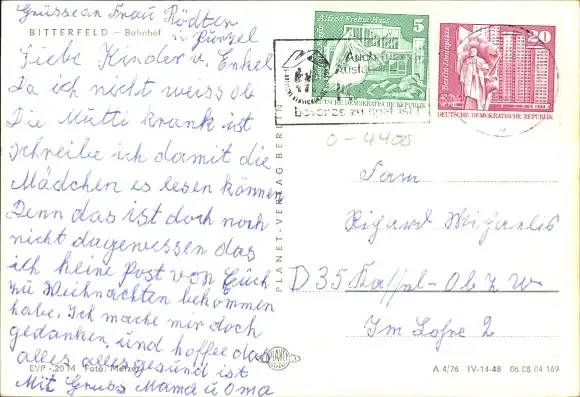 Grüssean Frau Rödter
u Purzel
BITTERFELD – Bahnhof
Liebe Kinder u. Enkel
Da ich nocht weiss ob
Die Mutti krank ist
schreibe ich damit die
Mädchen es lesen können
Denn das ist doch noch
nicht dagewessen das
ich keine Post von Euch
zu Weihnachten bekommen
habe. Ich mache mir doch
gedanken, und hoffee das
alles alles gesund ist
Mit Gruss Mama u Oma
EVP -,20 M Foto: Metzer
PLANET-VERLAG BERLIN
Berlin Alfred-Brehm-Haus 5
DEUTSCHE DEMOKRATISCHE REPUBLIK
Berlin Leninplatz 20
DEUTSCHE DEMOKRATISCHE REPUBLIK
bevor es zu spät ist!
0-4400
Fam
Richard Michaelis
D 35 Kassel - Ob z W
Im Lohre 2
PLANET
A 4/76 IV-14-48 06 08 04 169